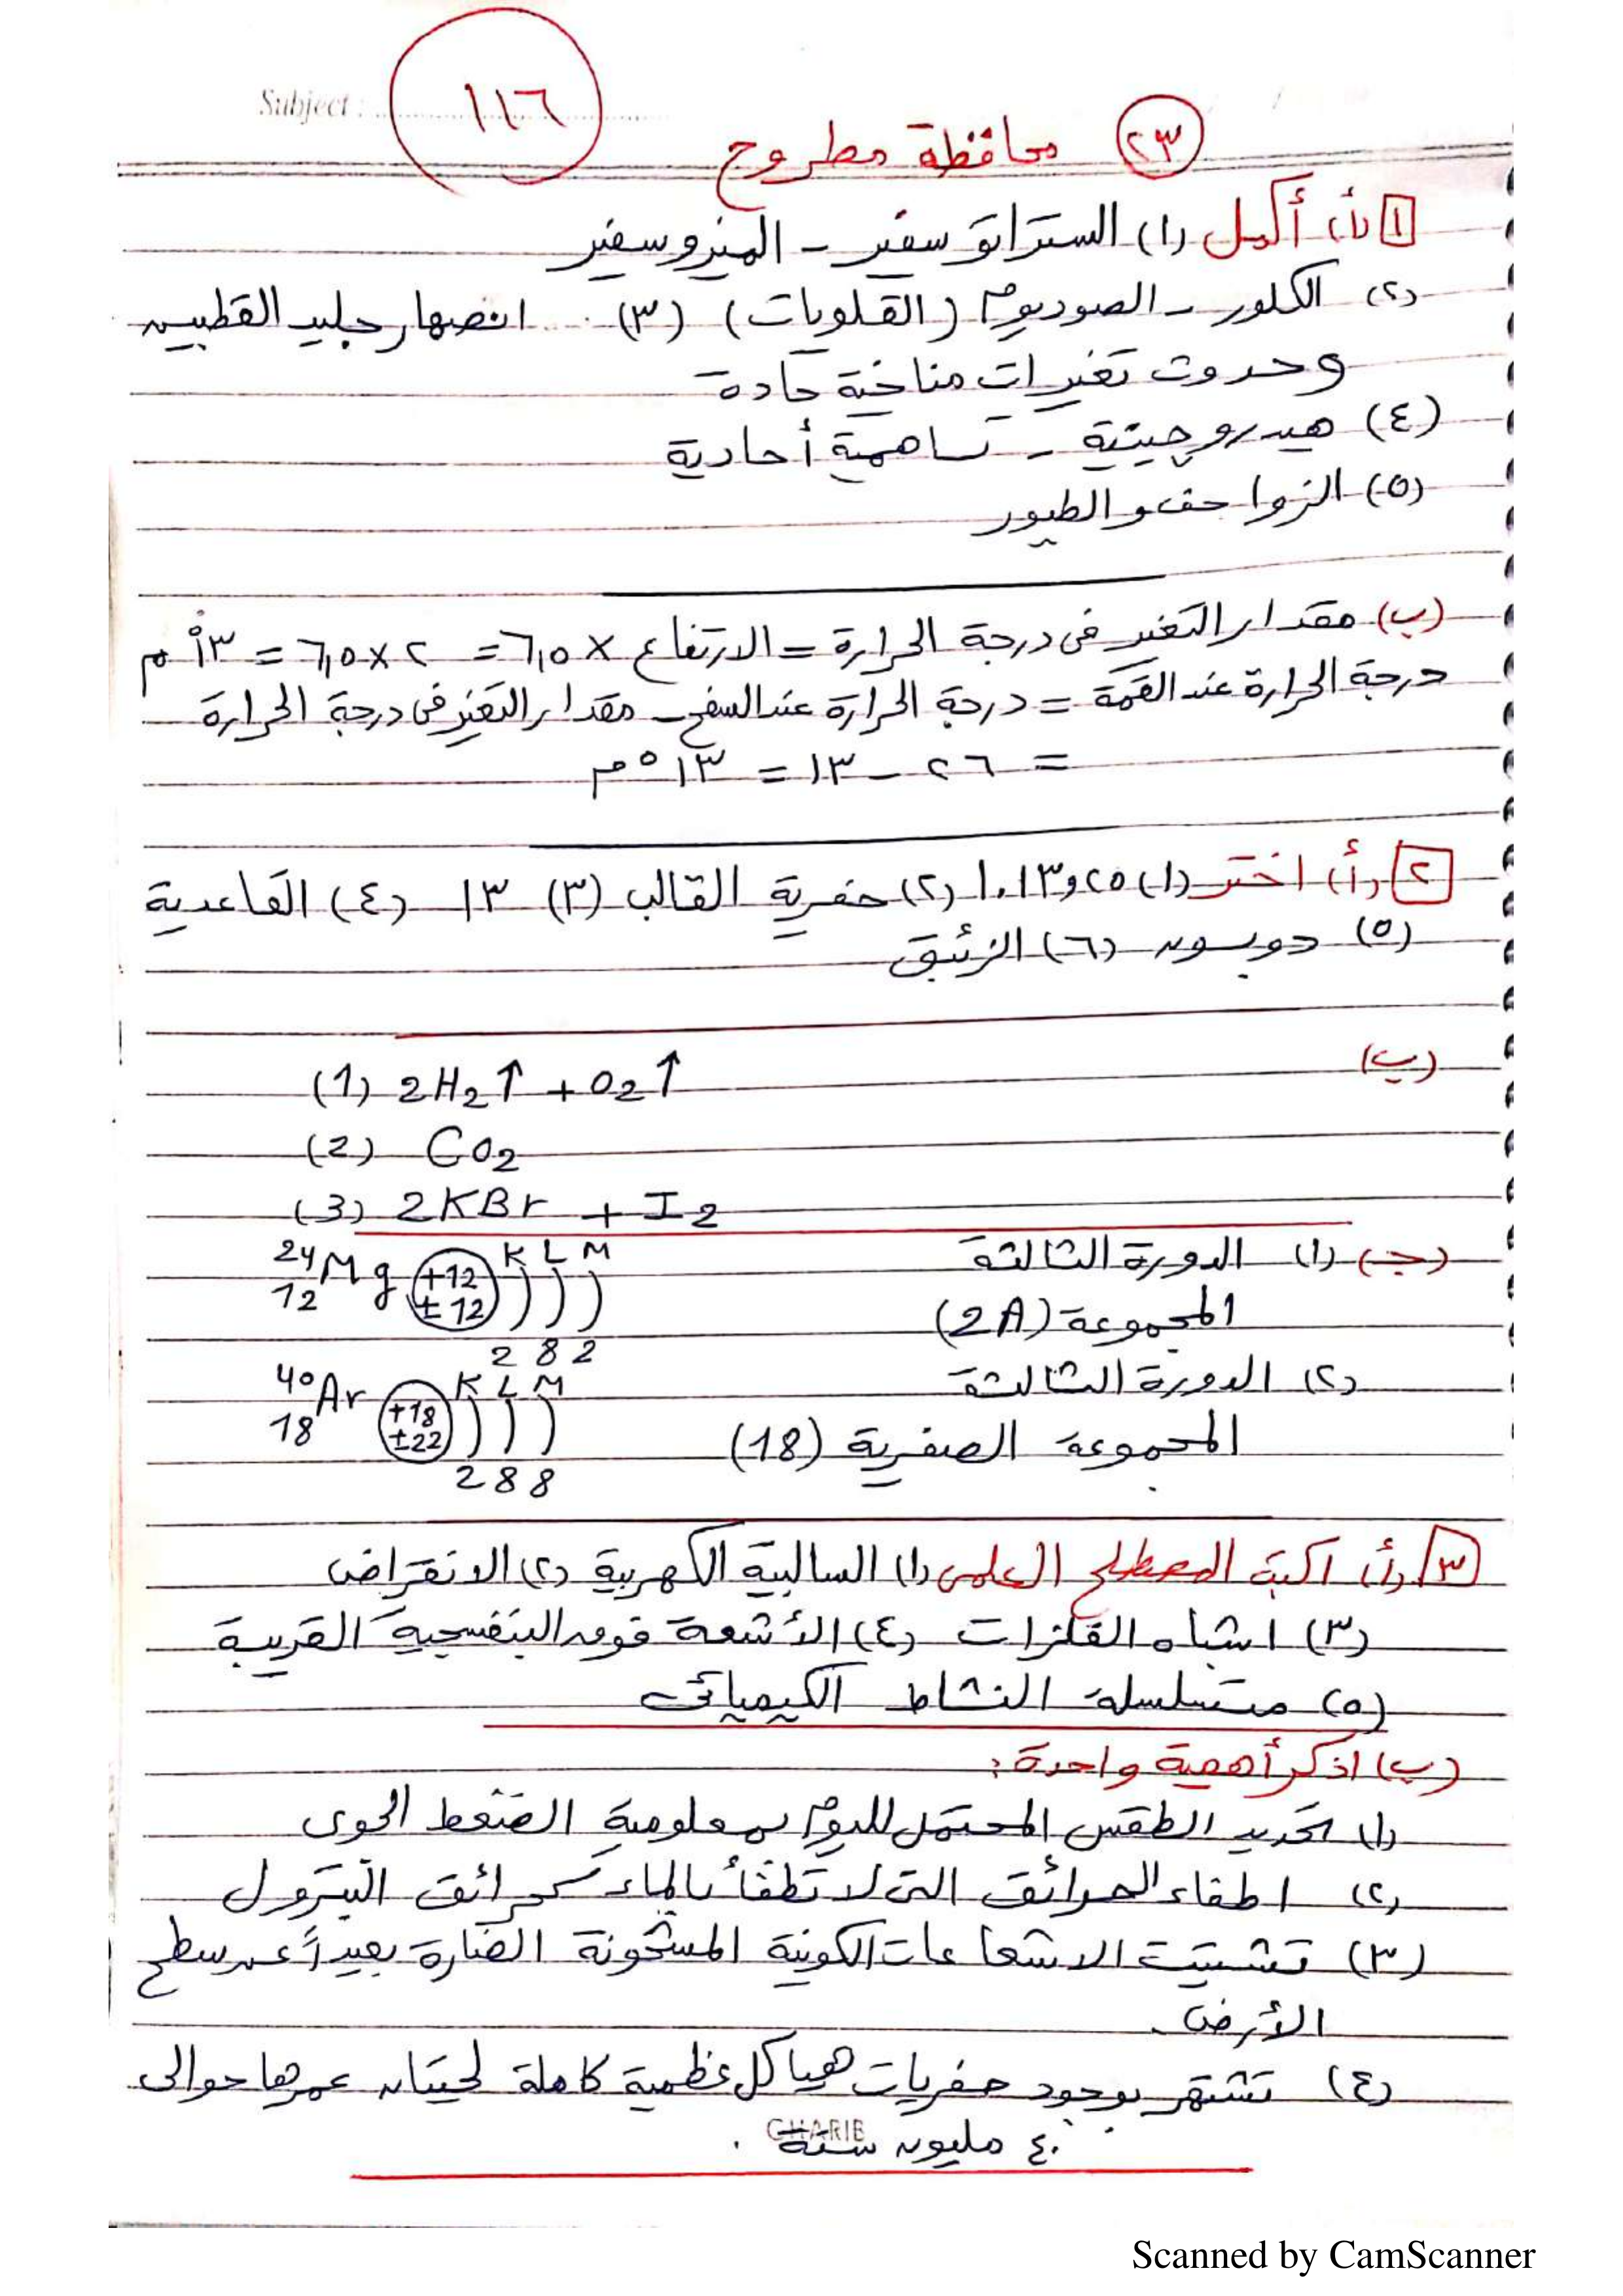 Subject :
١١٦
٢٣ محافظة مطروح
١ (أ) أكمل (١) الستراتوسفير - الميزوسفير
(٢) الكلور - الصوديوم (القلويات) (٣) انصهار جليد القطبين
وحدوث تغيرات مناخية حادة
(٤) هيدروجينية - تساهمية أحادية
(٥) الزواحف والطيور
(ب) مقدار التغير فى درجة الحرارة = الارتفاع × ٦,٥ = ٢ × ٦,٥ = ١٣°م
درجة الحرارة عند القمة = درجة الحرارة عند السفح - مقدار التغير فى درجة الحرارة
= ٢٦ - ١٣ = ١٣°م
٢ (أ) اختر (١) ١٠١٣,٢٥ (٢) حفرية القالب (٣) ١٣ (٤) القاعدية
(٥) دوبسون (٦) الزئبق
(ب)
(1) 2H2↑ + O2↑
(2) CO2
(3) 2KBr + I2
(جـ) (١) الدورة الثالثة 24 12 Mg +12 ±12 K L M
المجموعة (2A) 2 8 2
(٢) الدورة الثالثة 40 18 Ar +18 ±22 K L M
المجموعة الصفرية (18) 2 8 8
٣ (أ) اكتب المصطلح العلمى (١) السالبية الكهربية (٢) الانقراض
(٣) اشباه الفلزات (٤) الأشعة فوق البنفسجية القريبة
(٥) متسلسلة النشاط الكيميائى
(ب) اذكر أهمية واحدة :
(١) تحديد الطقس المحتمل لليوم بمعلومية الضغط الجوى
(٢) اطفاء الحرائق التى لا تطفأ بالماء كحرائق البترول
(٣) تشتيت الاشعاعات الكونية المشحونة الضارة بعيداً عن سطح
الأرض.
(٤) تشتهر بوجود حفريات هياكل عظمية كاملة لحيتان عمرها حوالى
٤٠ مليون سنة .
GHARIB
Scanned by CamScanner